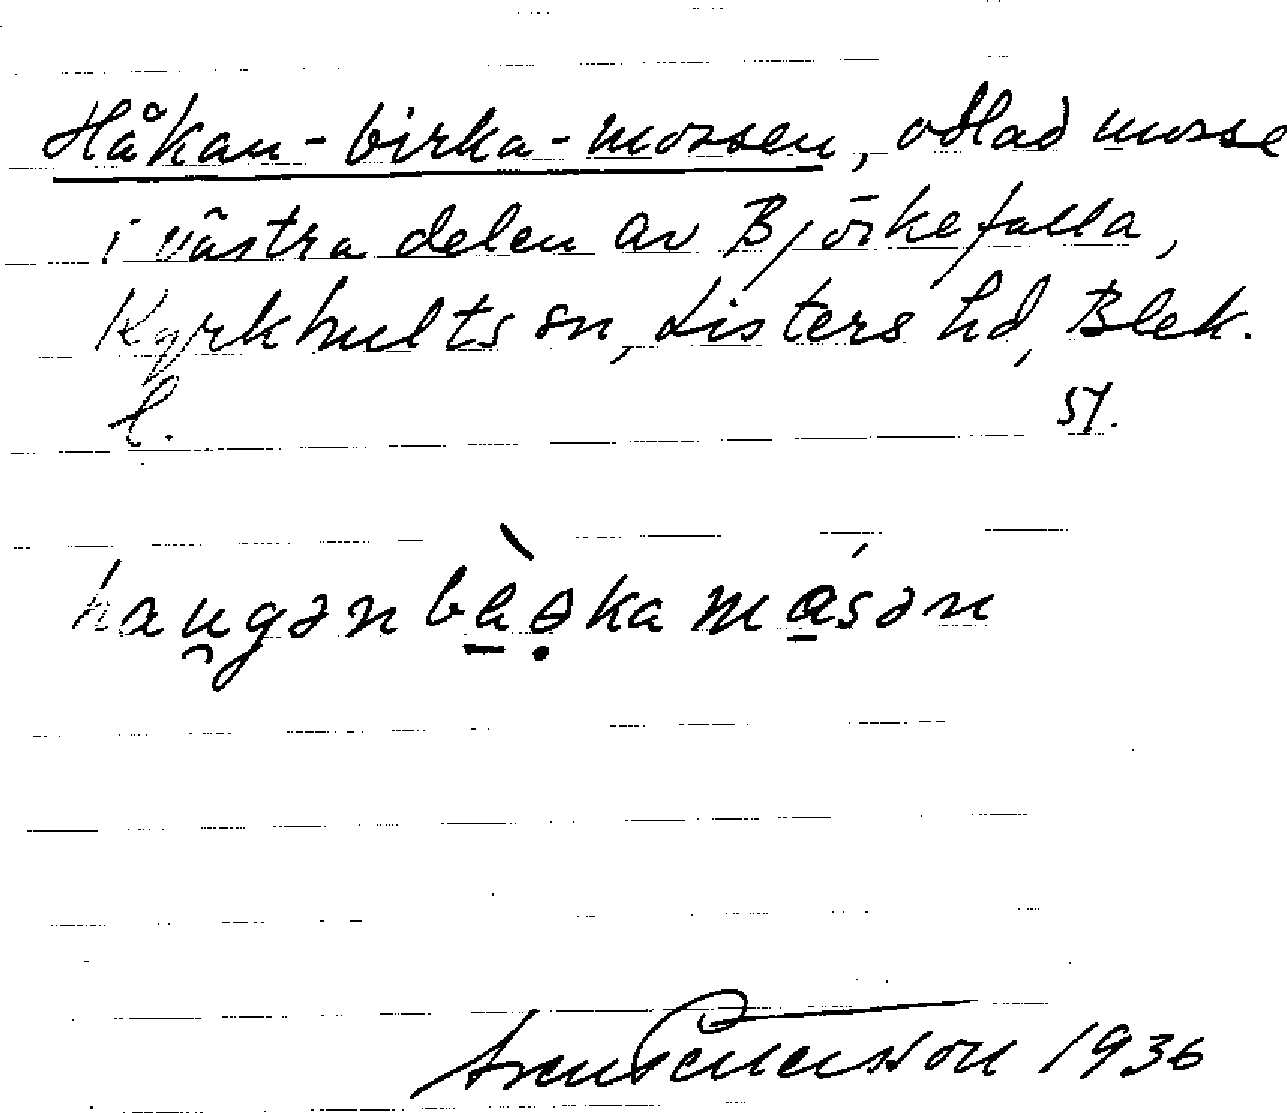 Håkan-birka-mossen, odlad mosse
i västra delen av Björkefalla,
Kyrkhults sn, Listers hd, Blek.
l. 51.
hau̯gənbè̠ə̣kamá̠sən
Sven Pettersson 1936